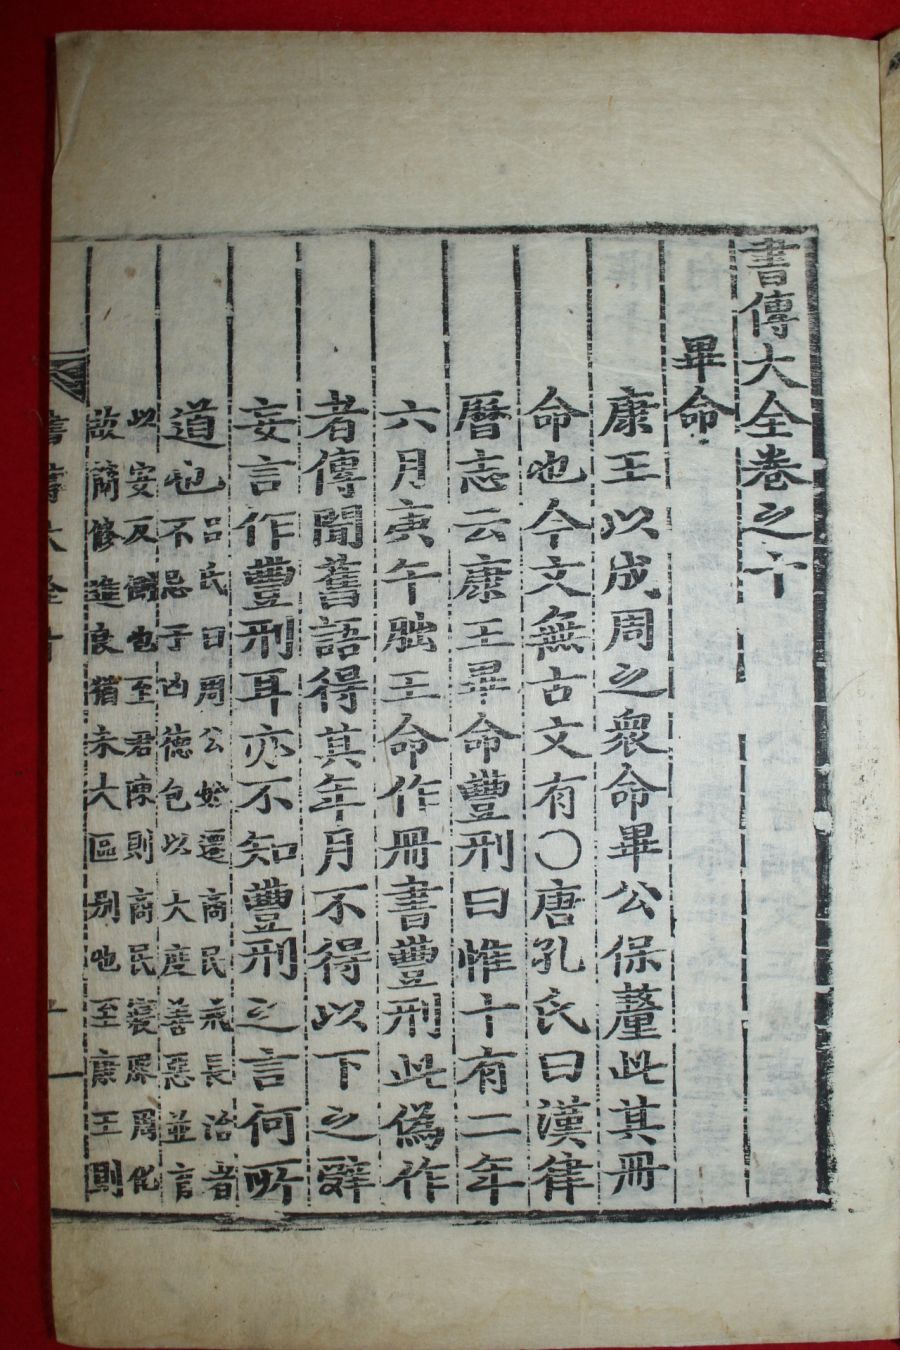 書傳大全卷之十
畢命
康王以成周之衆命畢公保釐此其冊
命也今文無古文有○唐孔氏曰漢律
曆志云康王畢命豐刑曰惟十有二年
六月庚午朏王命作冊書豐刑此僞作
者傳聞舊語得其年月不得以下之辭
妄言作豐刑耳亦不知豐刑之言何所
道也
呂氏曰周公始遷商民戒長治者
不忌于凶德包以大度善惡並言
以安反側也至君陳則商民寖漸周化
故簡修進良猶未大區別也至康王則
書傳大全十
一